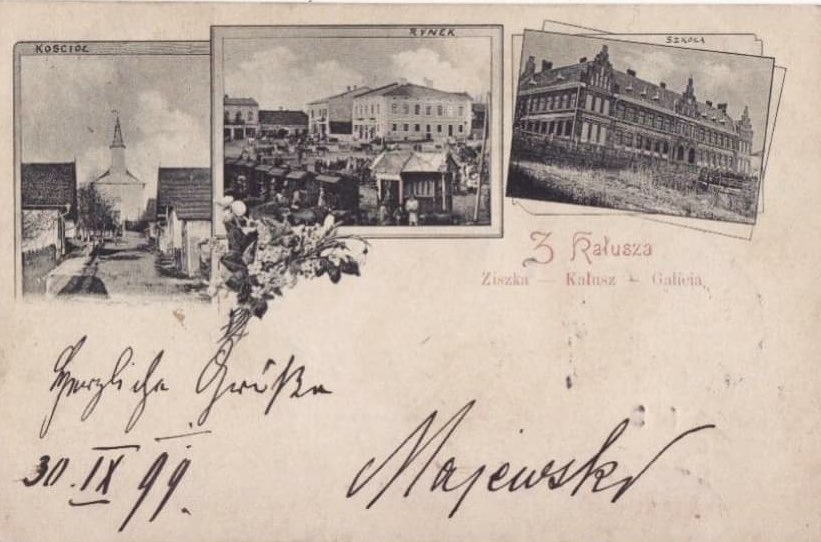 KOŚCIOŁ
RYNEK
SZKOŁA
Z Kałusza
Ziszka — Kałusz — Galicia
Herzliche Grüße
30. IX 99.
Majewski